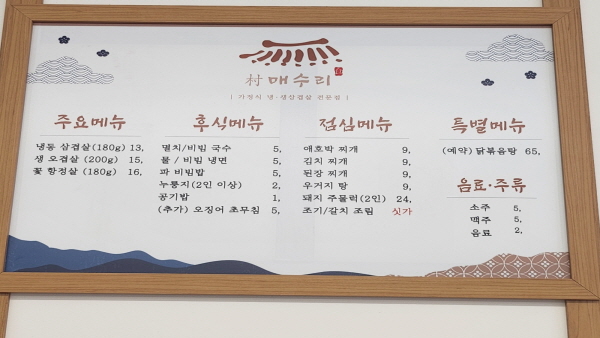 村 매수리
| 가정식 냉·생삼겹살 전문점 |
주요메뉴
냉동 삼겹살(180g) 13,
생 오겹살 (200g) 15,
꽃 항정살 (180g) 16,
후식메뉴
멸치/비빔 국수 5,
물 / 비빔 냉면 5,
파 비빔밥 5,
누룽지(2인 이상) 2,
공기밥 1,
(추가) 오징어 초무침 5,
점심메뉴
애호박 찌개 9,
김치 찌개 9,
된장 찌개 9,
우거지 탕 9,
돼지 주물럭(2인) 24,
조기/갈치 조림 싯가
특별메뉴
(예약) 닭볶음탕 65,
음료·주류
소주 5,
맥주 5,
음료 2,